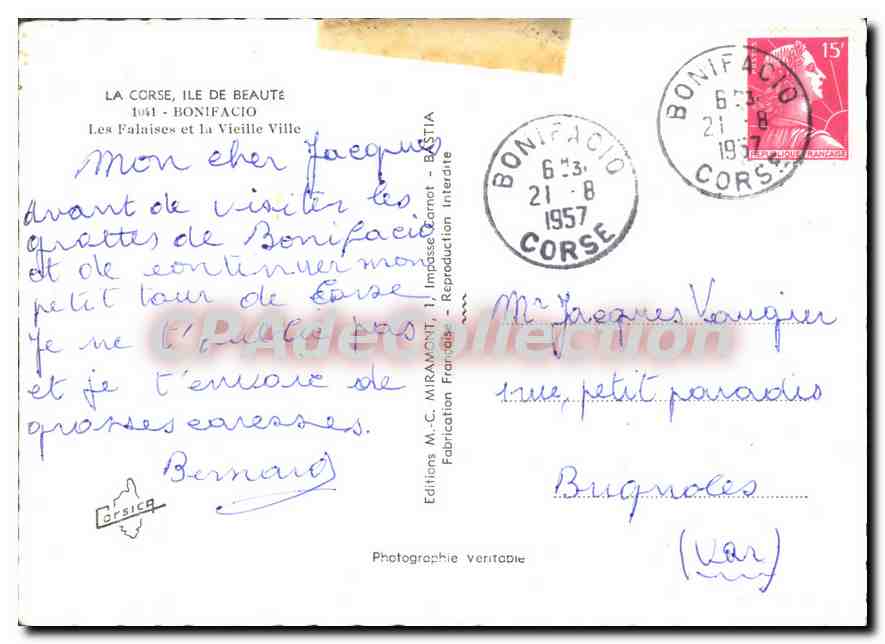 LA CORSE, ILE DE BEAUTÉ
1041 - BONIFACIO
Les Falaises et la Vieille Ville
Mon cher Jacques
avant de visiter les
grottes de Bonifacio
et de continuer mon
petit tour de Corse
je ne t'oublie pas
et je t'envoie de
grosses caresses.
Bernard
Corsica
Editions M.-C. MIRAMONT, 1, Impasse Carnot - BASTIA
Fabrication Française - Reproduction Interdite
Photographie Véritable
BONIFACIO
21 - 8
1957
CORSE
BONIFACIO
21 - 8
1957
CORSE
15F
REPUBLIQUE FRANÇAISE
Mr Jacques Vaugier
1 rue, petit paradis
Brignoles
(Var)
CPAdeCollection